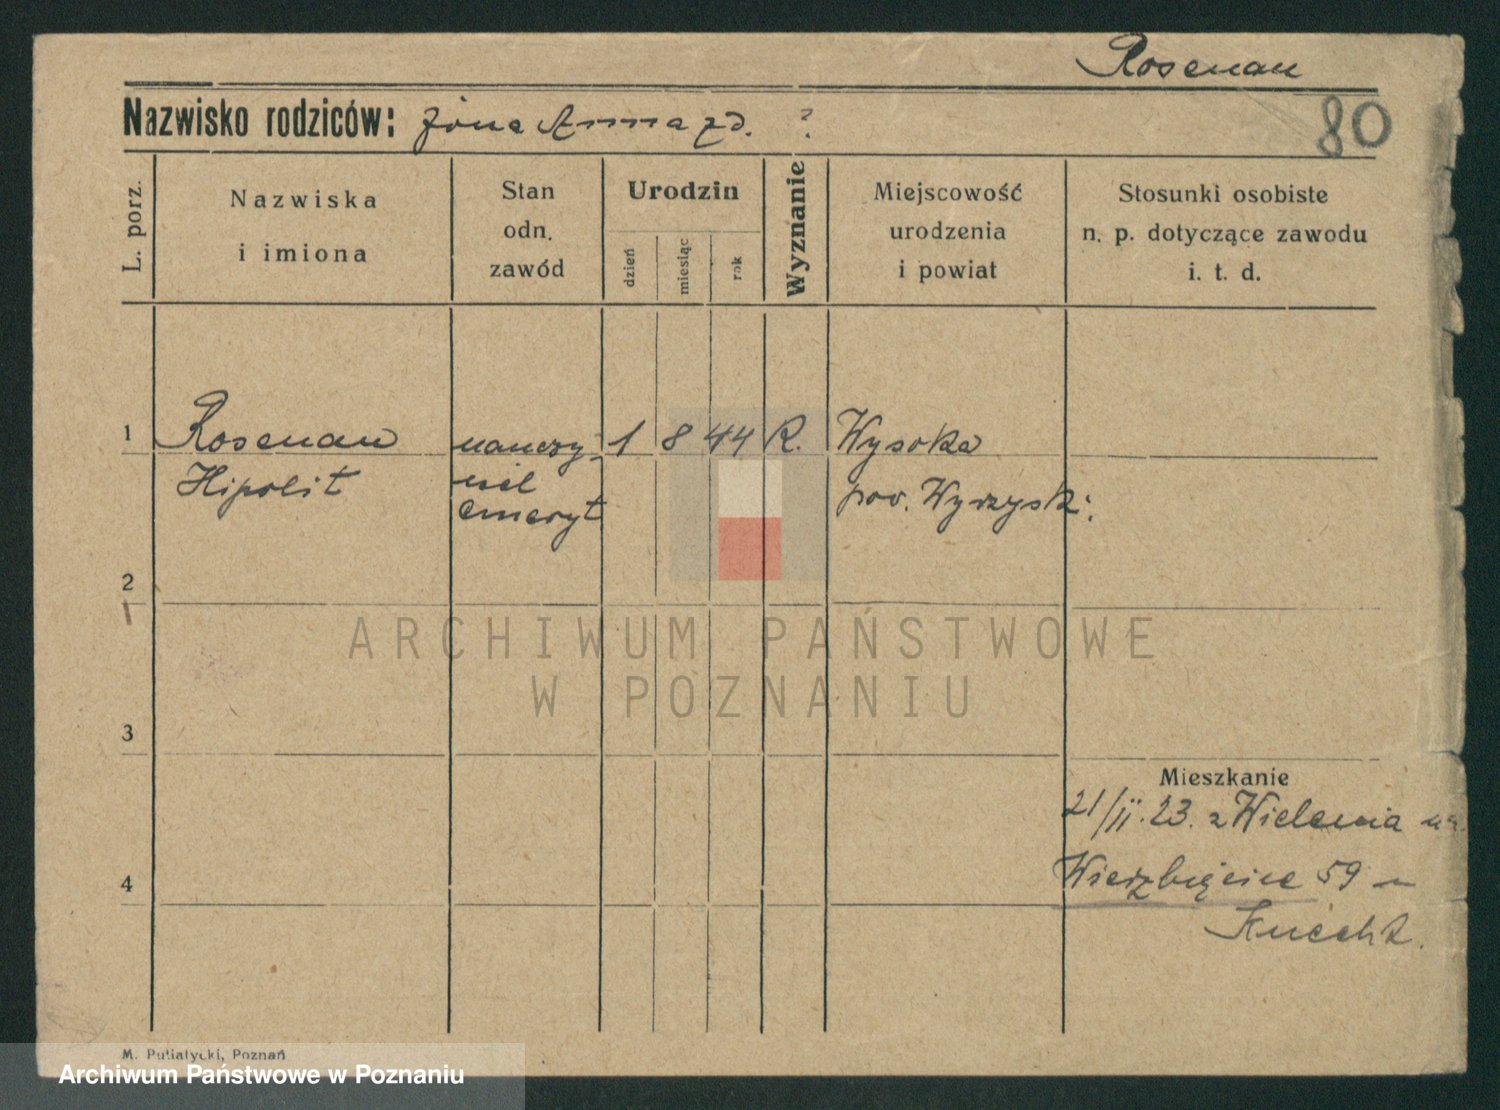 Rosenau
Nazwisko rodziców: żona Anna zd. ?
80
L. porz.
Nazwiska
i imiona
Stan
odn.
zawód
Urodzin
dzień
miesiąc
rok
Wyznanie
Miejscowość
urodzenia
i powiat
Stosunki osobiste
n. p. dotyczące zawodu
i. t. d.
1
Rosenau
Hipolit
nauczy-
ciel
emeryt
1 8 44 R.
Wysoka
pow. Wyrzyski.
2
3
4
Mieszkanie
21/II.23. z Wielenia
Wierzbięcice 59
Knecht.
ARCHIWUM PAŃSTWOWE
W POZNANIU
M. Putiatycki, Poznań
Archiwum Państwowe w Poznaniu